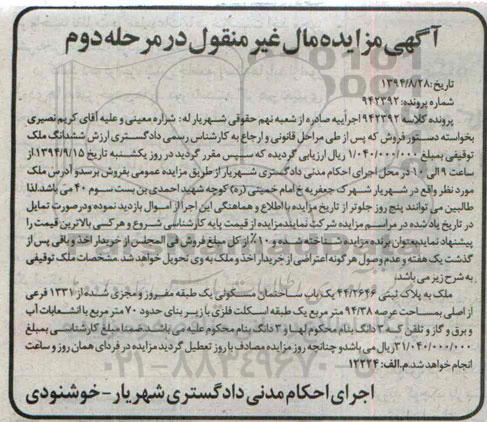 آگهی مزایده مال غیر منقول در مرحله دوم
تاریخ: ۱۳۹۴/۸/۲۸
شماره پرونده: ۹۴۲۳۹۲
پرونده کلاسه ۹۴۲۳۹۲ اجراییه صادره از شعبه نهم حقوقی شهریار له: شراره معینی و علیه آقای کریم نصیری
بخواسته دستور فروش که پس از طی مراحل قانونی و ارجاع به کارشناس رسمی دادگستری ارزش ششدانگ ملک
توقیفی بمبلغ ۱/۰۴۰/۰۰۰/۰۰۰ ریال ارزیابی گردیده که سپس مقرر گردید در روز یکشنبه تاریخ ۱۳۹۴/۹/۱۵ از
ساعت ۹ الی ۱۰ در محل اجرای احکام مدنی دادگستری شهریار از طریق مزایده عمومی بفروش برسد و آدرس ملک
مورد نظر واقع در شهریار شهرک جعفریه خ امام خمینی (ره) کوچه شهید احمدی بن بست سوم ۴۰ می باشد. لذا
طالبین می توانند پنج روز جلوتر از تاریخ مزایده با اطلاع و هماهنگی این اجرا از اموال بازدید نموده و در صورت تمایل
در تاریخ یاد شده در مراسم مزایده شرکت نمایند مزایده از قیمت پایه کارشناسی شروع و هر کسی بالاترین قیمت را
پیشنهاد نماید بعنوان برنده مزایده شناخته شده و ۱۰٪ از کل مبلغ فروش فی المجلس از خریدار اخذ و باقی پس از
گذشت یک هفته و عدم وصول هر گونه اعتراضی از خریدار اخذ و ملک به وی تحویل خواهد شد. مشخصات ملک توقیفی
به شرح زیر می باشد:
ملک به پلاک ثبتی ۴۴/۲۶۴۶ یک باب ساختمان مسکونی یک طبقه مفروز و مجزی شده از ۱۳۳۱ فرعی
از اصلی بمساحت عرصه ۹۴/۳۸ متر مربع یک طبقه اسکلت فلزی با زیر بنای حدود ۷۰ متر مربع با انشعابات آب
و برق و گاز و تلفن که ۳ دانگ بنام محکوم لها و ۳ دانگ بنام محکوم علیه می باشد، ضمنا مبلغ کارشناسی بمبلغ
۳۱/۰۴۰/۰۰۰/۰۰۰ ریال می باشد و چنانچه روز مزایده مصادف با روز تعطیل گردید مزایده در فردای همان روز و ساعت
انجام خواهد شد. م. الف: ۱۲۲۲۴
اجرای احکام مدنی دادگستری شهریار - خوشنودی